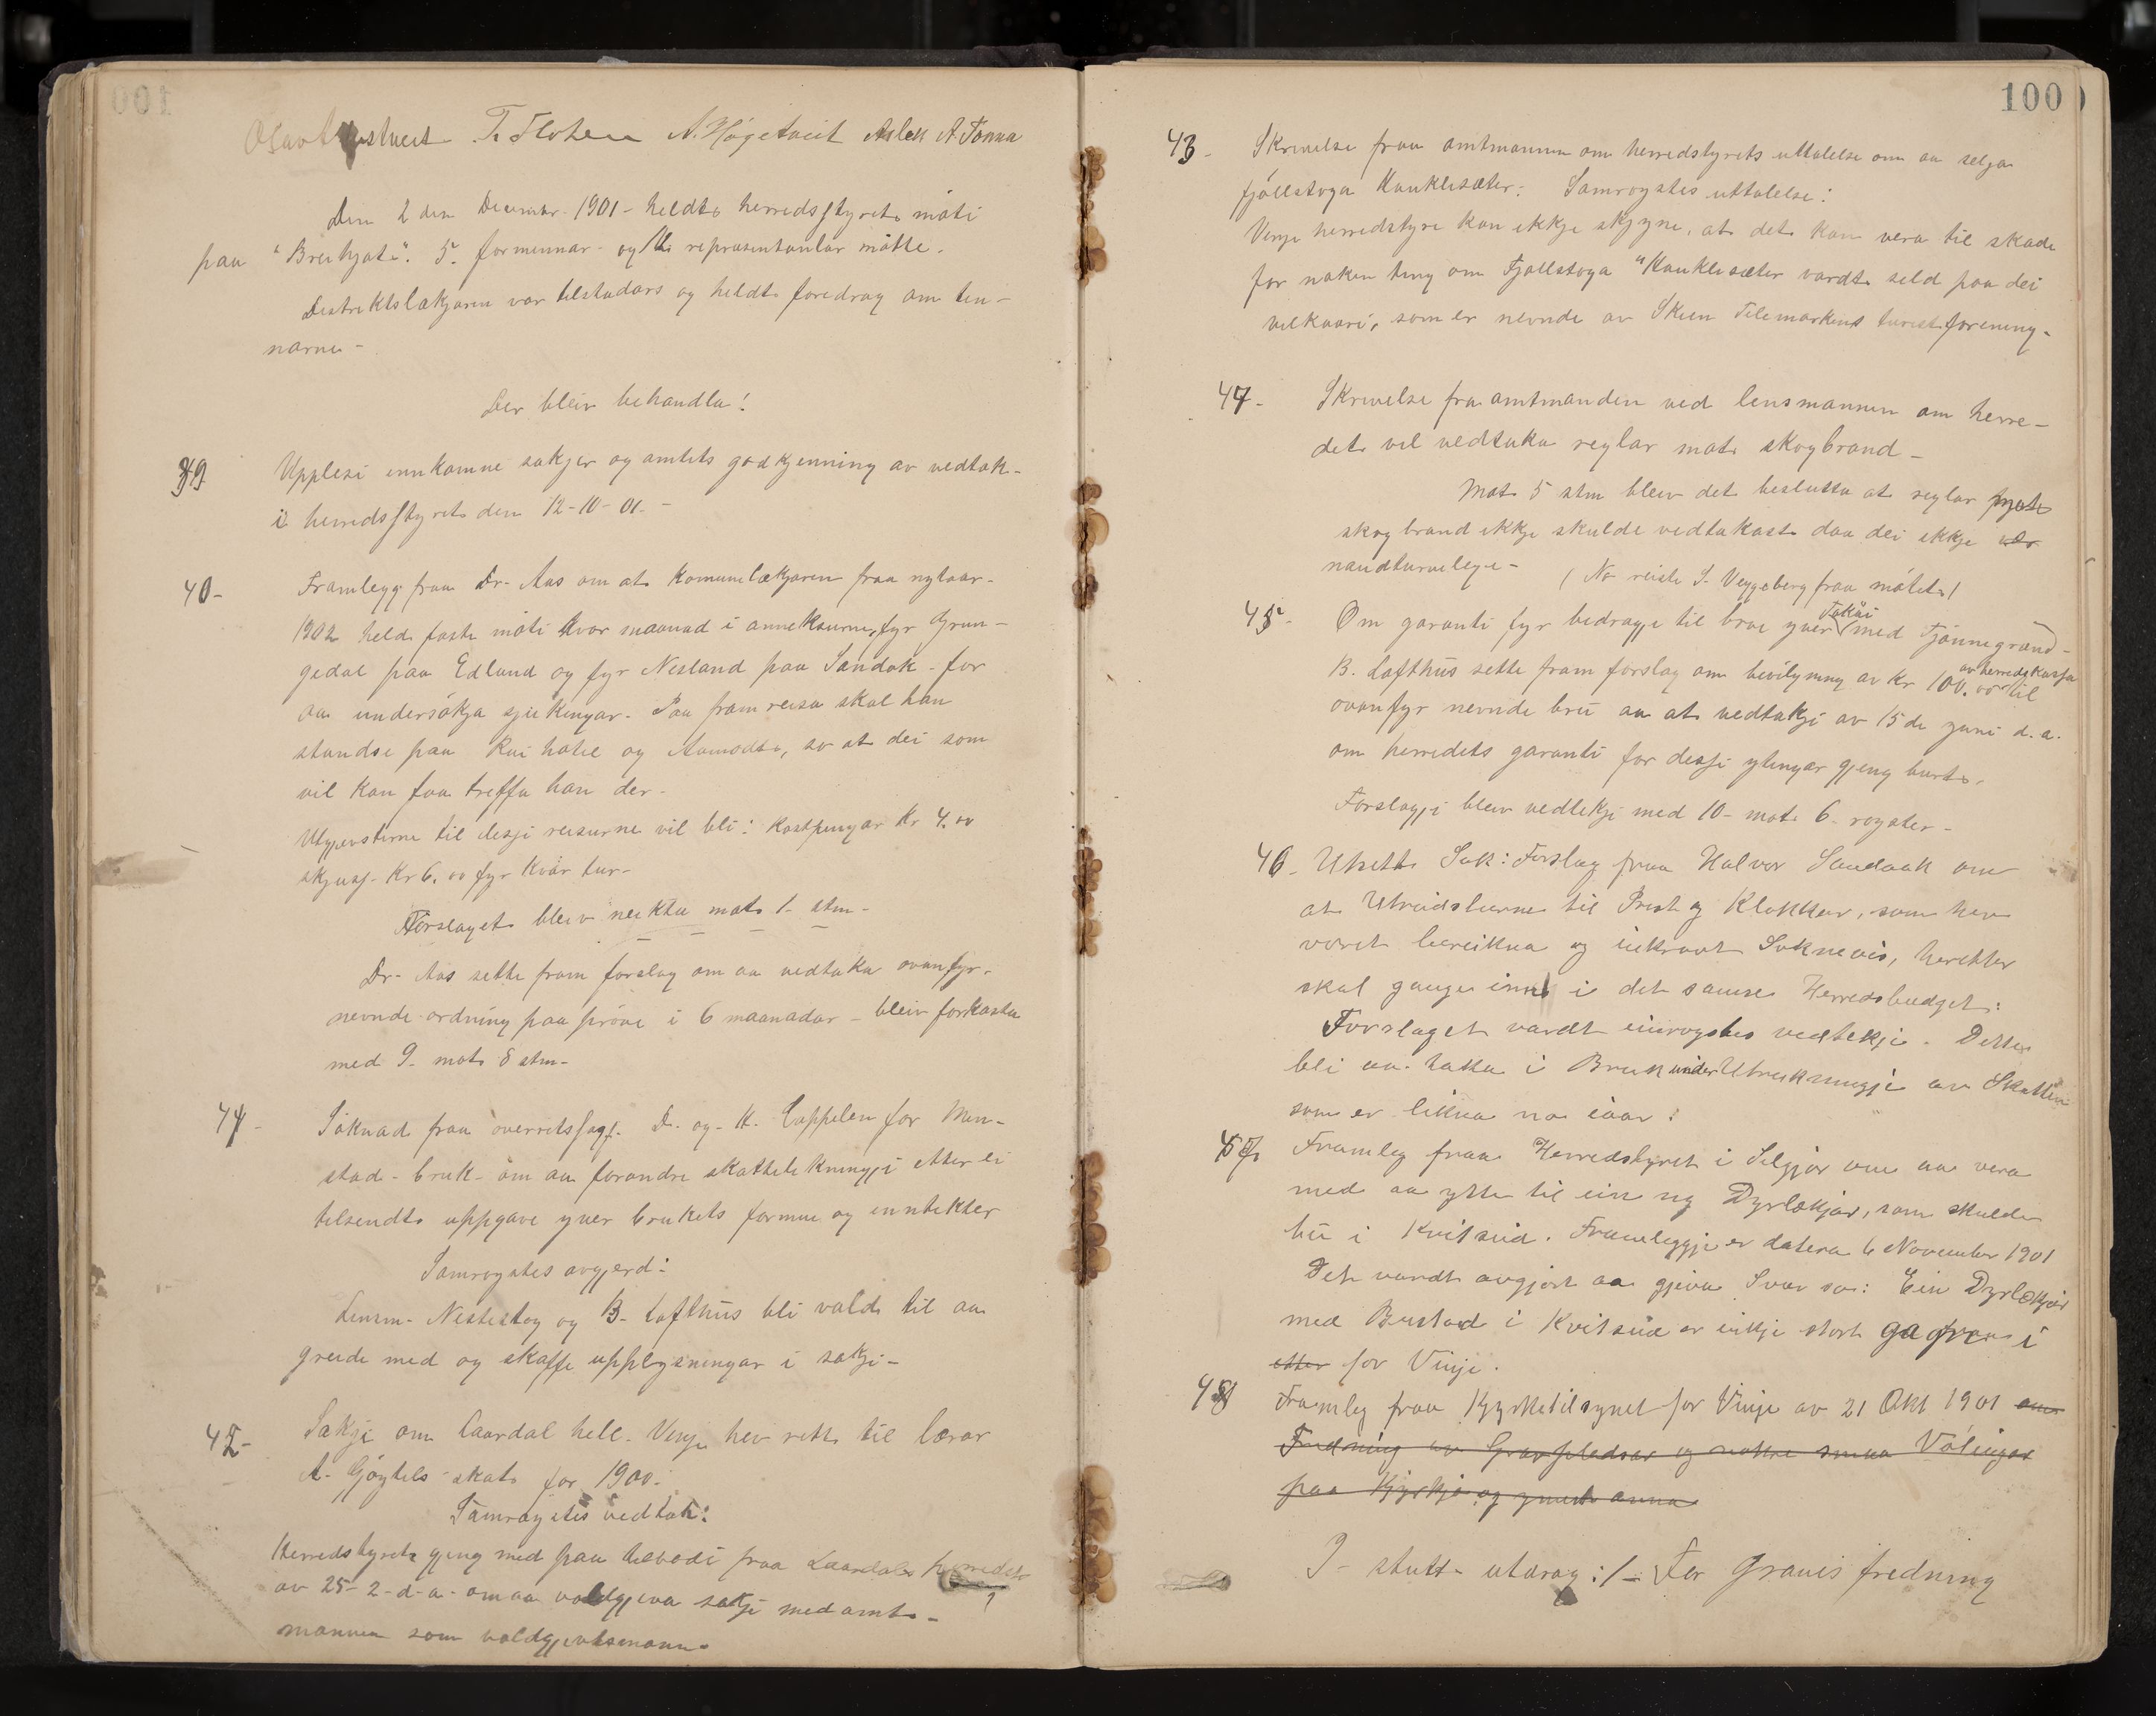 T. Flothen N. Høgetveit Aslak A. Tonna
Den 2 den December 1901 - heldt herredsstyret möti
paa "Breihjot". 5. formennar og representantar mötte.
Distriktslækjaren var tilstadars og heldt foredrag om ten-
narne -
Der bleiv behandla:
39 Upplesi innkomne sakjer og amtets godkjenning av vedtak-
i herredsstyret den 12-10-01. -
40- Framlegg fraa Dr. Aas om at komunelækjaren fraa nyttaar-
1902 held faste möti kvar maanad i annekserne, fyr Grun-
gedal paa Edland og fyr Nesland paa Sandok - for
aa undersökja sjukingar. Paa framreisa skal han
standse paa Rui hotel og Aamodt, so at dei som
vil kan faa treffa han der.
Utgjevsterne til desse reisurne vil bli: Kostpengar Kr 4.00
skjuss. Kr 6.00 fyr kvar tur-
Forslaget bleiv neikta mot 1. stm-
Dr. Aas sette fram forslag om aa vedtaka ovanfyr-
nevnde ordning paa pröve i 6 maanadar - bleiv forkasta
med 9. mot 8 stm-
41- Söknad fraa overretssagf. D. og H. Cappelen for Men-
stad - bruk - om aa forandre skattelikningji etter ei
tilsendt uppgave yver brukets formue og inntekter
Samroystes avgjerd:
Lensm. Nestestog og B. Lofthus bli vald til aa
greide med og skaffe upplysningar i sakji-
42- Sakji om Laardal hell. Vinje hev rett til lærar
A. Gjöytils skat for 1900.
Samröystes vedtak:
Herredstyret gjeng med paa tilbodi fraa Laardals herredst
av 25-2-d-a- om aa voldgjeva sakji med amt-
mannen som voldgjevtsmann-
100
43- Skrivelse fraa amtmannen om herredstyrets uttalelse om aa selja
fjöllstoga Haukliseter: Samroystes uttalelse:
Vinje herredstyre kan ikkje skjyne, at det kan vera til skade
for noken ting om Fjöllstoga "Haukliseter vardt seld paa dei
vilkaari, som er nevnde av Skien Telemarkens turistforening-
44- Skrivelse fra amtmanden ved lensmannen om herre-
det vil vedtaka reglar mot skogbrand -
Mot 5 stm bleiv det beslutta at reglar
skogbrand ikkje skulde vedtakast daa dei ikkje var
naudturvelege - ( No reiste S. Veggeberg fraa mötet )
45- Om garanti fyr bedragje til brue yver Tokaai med Tjönnegrand-
B. Lofthus sette fram forslag om bevilgning av Kr 100.00 av herredskassa til
ovanfyr nevnde bru aa at vedtakje av 15 de juni d.a.
om herredets garanti for dessi ytingar gjeng burt.
Forslagji bleiv vedtekji med 10 - mot 6 - royster-
46- Utsett Sak: Forslag fraa Halvor Sandaak om
at Utreidslurne til Prest og Klokkar, som hev
voret bereikna og inkravt Soknevis, heretter
skal gange inn i det samse Herredsbudget:
Forslaget vardt einroystes vedtekje. Dette
bli aa taka i Bruk under Utrekningje av Skatten
som er likna no iaar:
47 Framleg fraa Herredstyret i Selgjor om aa vera
med aa ytte til ein ny Dyrlækjar, som skulde
bu i Kvitseid. Framleggje er datera 6 November 1901
Det vardt avgjort aa gjeva Svar so: Ein Dyrlækjar
med Bustad i Kvitseid er inkje stort gagn i
etter for Vinje.
48 Framleg fraa Kyrketilsynet for Vinje av 21 Okt 1901 om
Fredning av Gravpladsar og nokre smaa Vølingar
paa Kyrkje og ymest anna
I - stutt - utdrag :/- For Gravis fredning